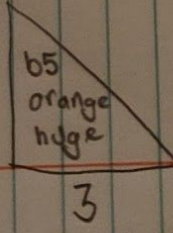 b5
orange
huge
3